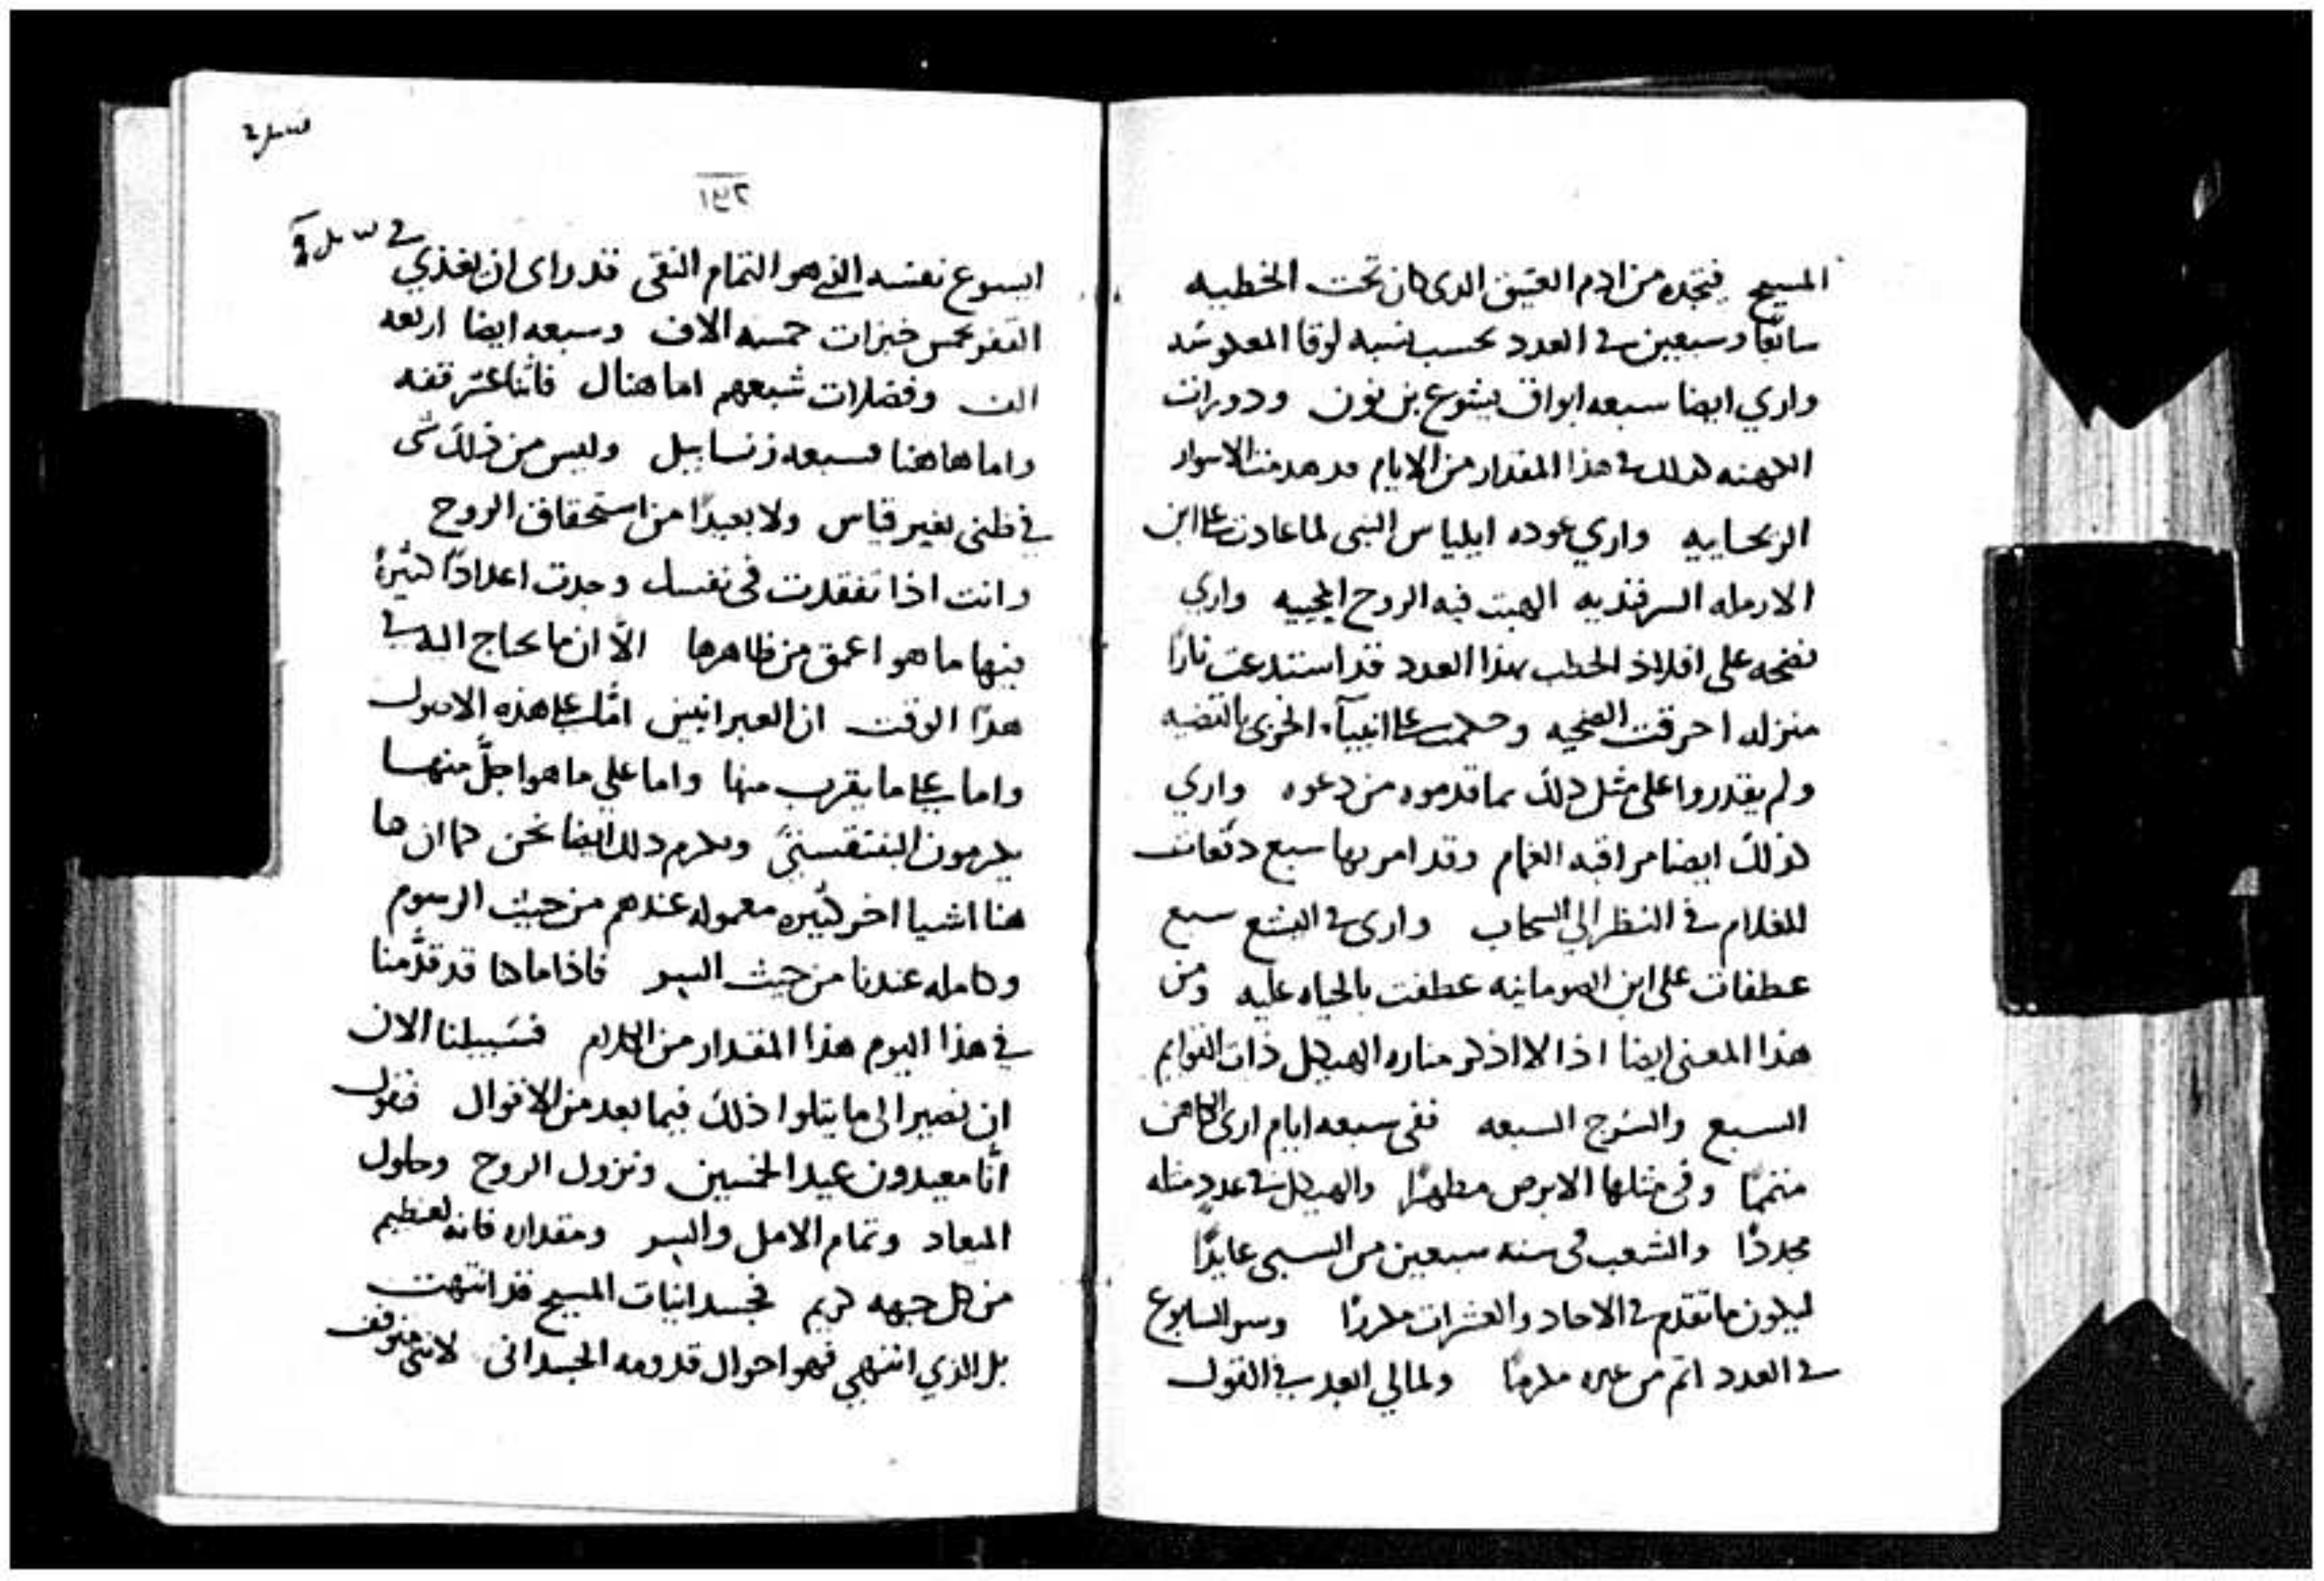 المسيح فتجده من ادم العتيق الدى كان تحت الخطيه
سابعًا وسبعين في العدد بحسب نسبه لوقا المعكوسه
واري ايضا سبعه ابواق يشوع بن نون ودورات
الكهنه كدلك في هذا المقدار من الايام قد هدمت الاسوار
الريحاييه واري عوده ايلياس النبى لما عادت على ابن
الارمله السرفنديه الهبت فيه الروح المحييه واري
نضحه على افلاذ الحطب بهذا العدد قد استدعت نارًا
منزله احرقت الضحيه وحكمت على انبيآء الخزى بالقضيه
ولم يقدروا على مثل دلك بما قدموه من دعوه واري
كذلك ايضا مراقبه الغمام وقد امر بها سبع دفعات
للغلام في النظر الي السحاب وارى في اليشع سبع
عطفات على ابن الصومانيه عطفت بالحياه عليه ومن
هذا المعنى ايضا اذا لا اذكر مناره الهيكل ذات القوايم
السبع والسرج السبعه ففى سبعه ايام ارى الكاهن
متممًا وفى مثلها الابرص مطهرًا والهيكل في عدد مثله
مجددًا والشعب فى سنه سبعين من السبى عايدًا
ليكون ما تقدم في الاحاد والعشرات مكررًا وسر السابوع
في العدد اتم من غيره مكرمًا ولمالي ابعد في القول
١٤٢
ايسوع نفسه الذي هو التمام النقى قد راى ان يغذي في
القفر بخمس خبزات خمسه الاف وسبعه ايضا اربعه
الف وفضلات شبعهم اما هناك فاثنا عشر قفه
واما هاهنا فسبعه زنابيل وليس من ذلك شى
في ظنى بغير قياس ولا بعيدًا من استحقاق الروح
وانت اذا تفقدت فى نفسك وجدت اعدادًا كثيرةً
فيها ما هو اعمق من ظاهرها الاّ ان ما يحتاج اليه في
هذا الوقت ان العبرانيين امّا على هذه الاصول
واما على ما يقرب منها واما على ما هو اجلّ منها
يكرمون البنتقستي ونكرم دلك ايضا نحن كما ان ها
هنا اشيا اخر كثيره معموله عندهم من حيث الرسوم
وكامله عندنا من حيث السر فاذا ما كنا قد قدّمنا
في هذا اليوم هذا المقدار من الكلام فسبيلنا الان
ان نصير الى ما يتلوا ذلك فيما بعد من الاقوال فنقول
انّا معيدون عيد الخمسين ونزول الروح وحلول
الميعاد وتمام الامل والسر ومقداره فانه لعظيم
من كل جهه كريم فجسدانيات المسيح قد انتهت
بل الذي انتهي فهو احوال قدومه الجسدانى لاننى متوقف